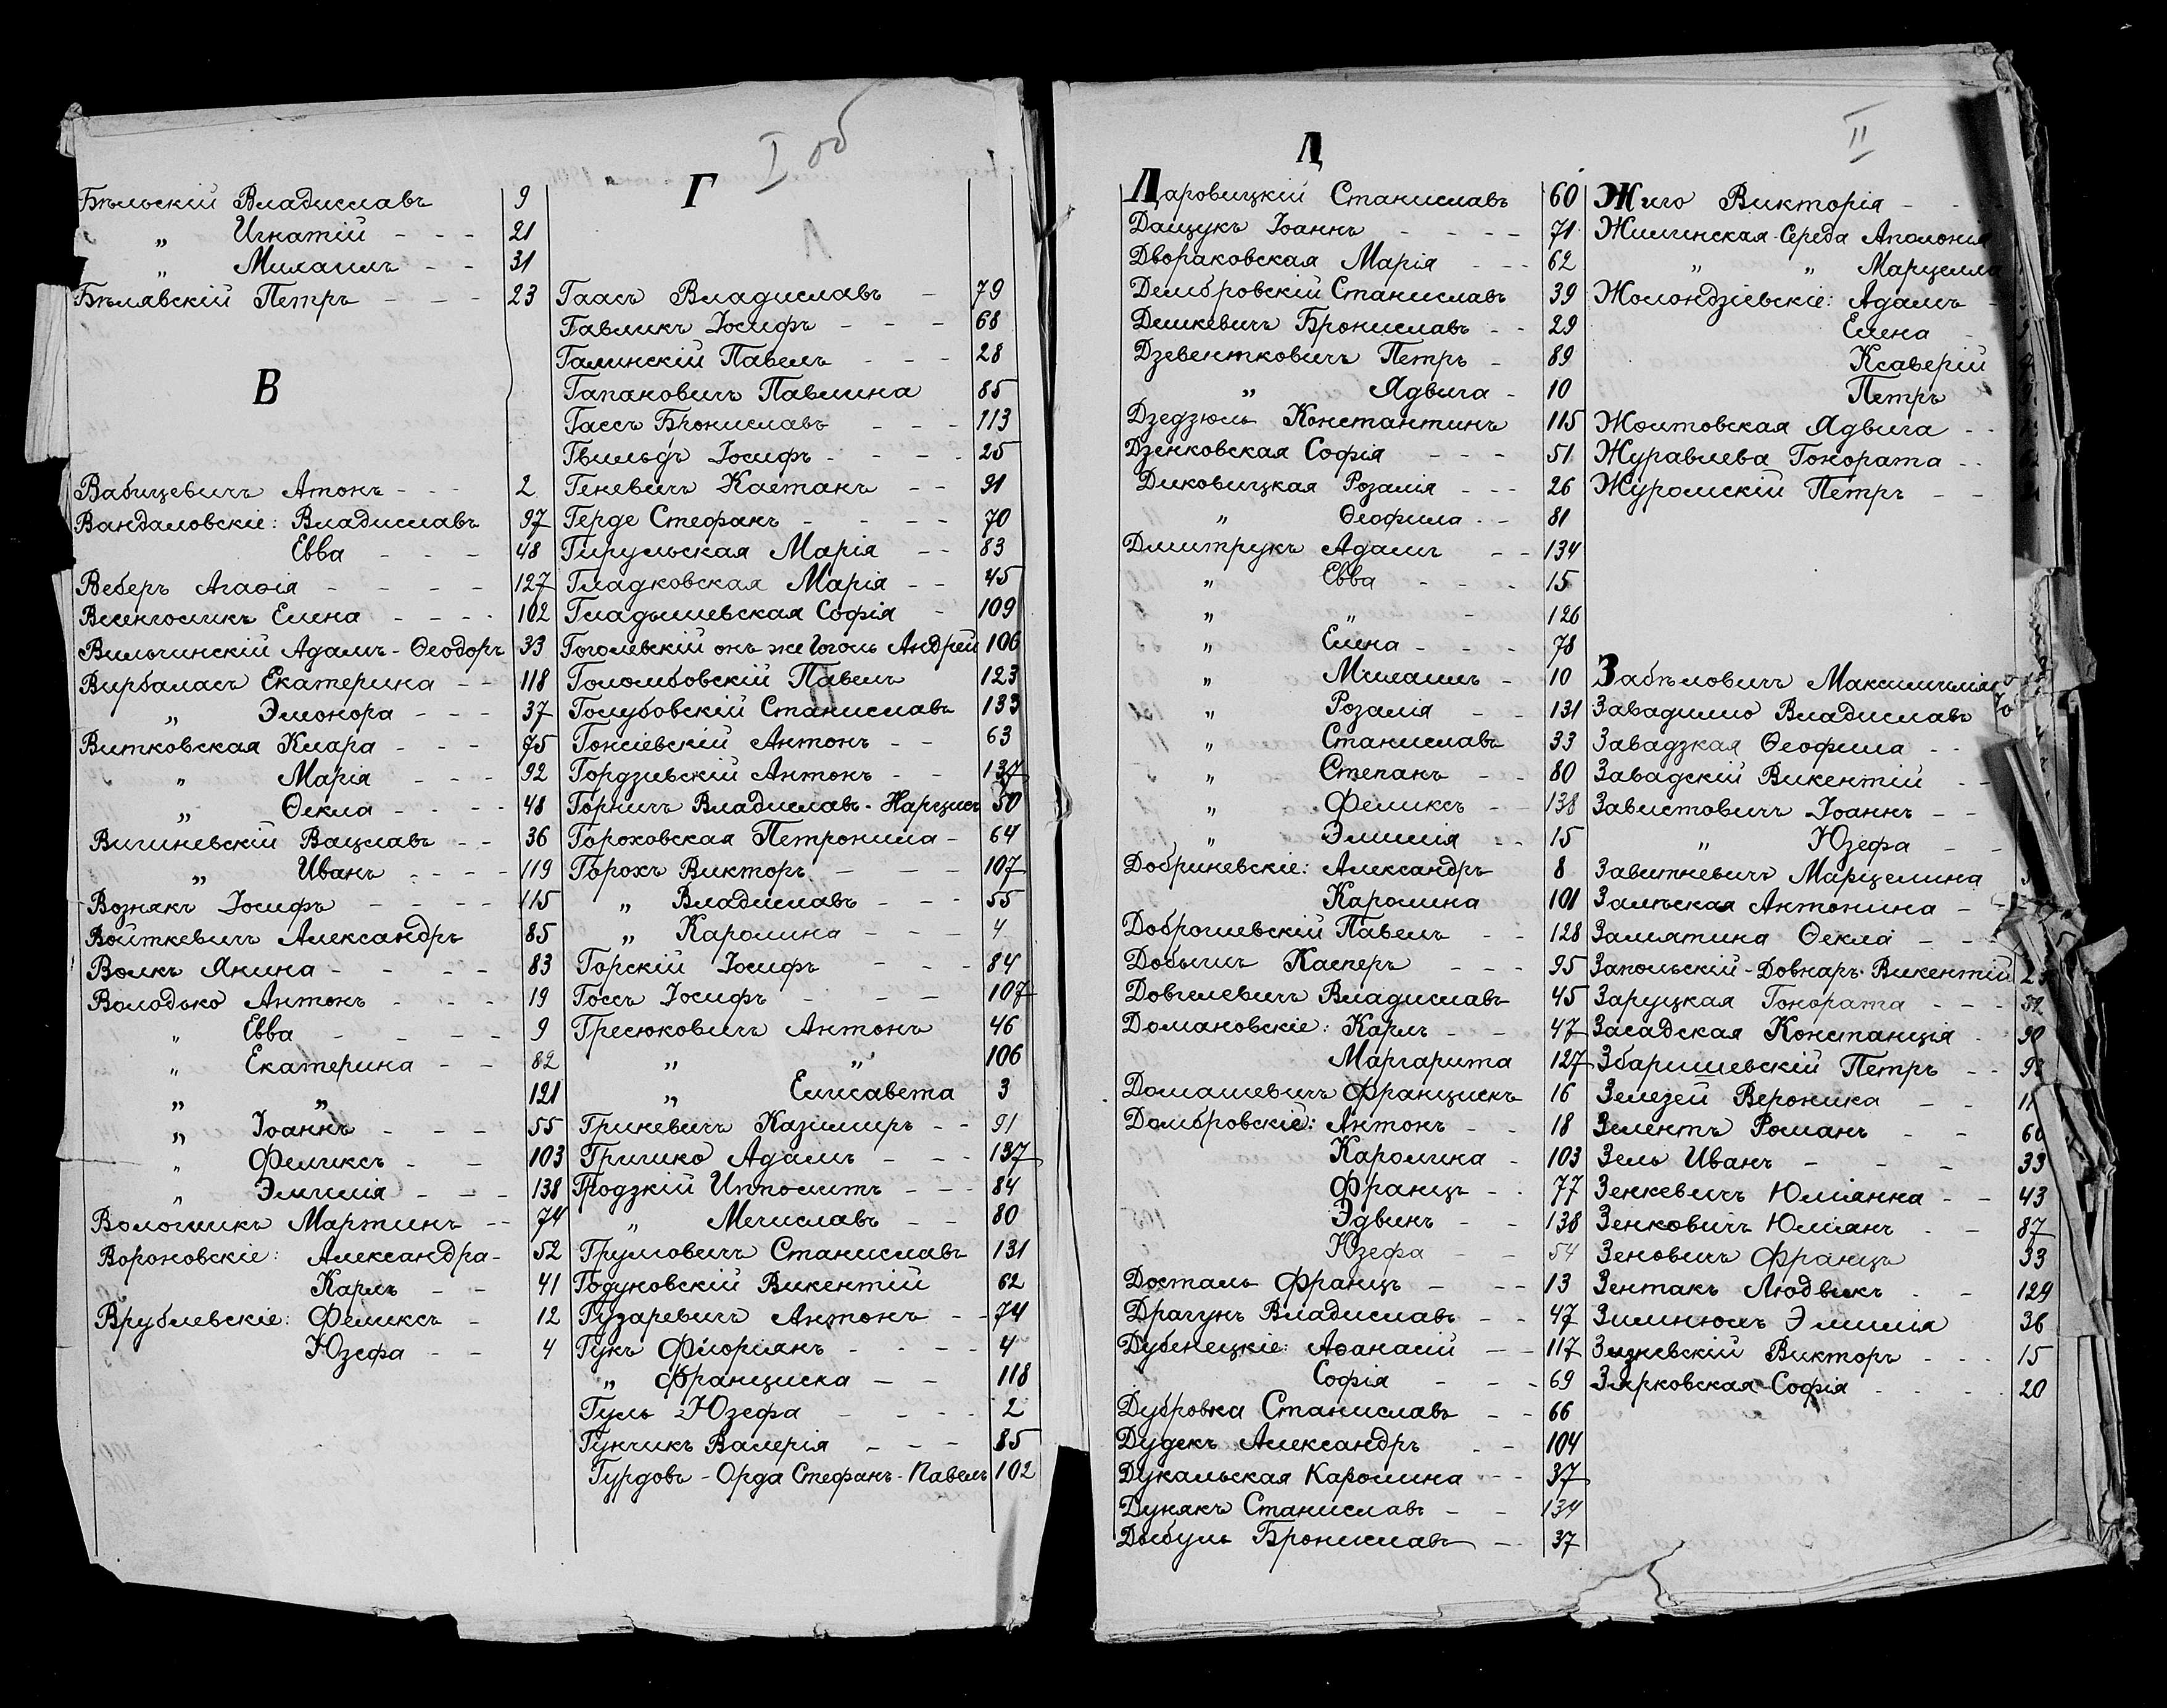 I об
Бѣльскій Владиславъ 9
„ Игнатій - - - 21
„ Михаилъ - - 31
Бѣлявскій Петръ - - - 23
В
Вабищевичъ Атонъ - - - 2
Вандаловскіе: Владиславъ 97
Евва - - - 48
Веберъ Агаѳія - - - - 127
Венголикъ Елена - - - - 102
Вильчинскій Адамъ-Ѳеодоръ 33
Вирбаласъ Екатерина - - 118
„ Элонора - - - 37
Витковская Клара - - - 75
„ Марія - - - 92
„ Ѳекла - - - - 48
Вишневскій Вацлавъ - - 36
„ Иванъ - - - - 119
Вознякъ Іосифъ - - - - 115
Войткевичъ Александръ 85
Волкъ Янина - - - - 83
Володько Антонъ - - - 19
„ Евва - - - - 9
„ Екатерина - - 82
„ „ 121
„ Іоаннъ - - - 55
„ Феликсъ - - 103
„ Эмилія - - - 138
Вологликъ Мартинъ - - 74
Вороновскіе: Александра - 52
Карлъ - - 41
Врублевскіе: Феликсъ - 12
Юзефа - - 4
Г
Гаасъ Владиславъ - 79
Гавликъ Іосифъ - - - 68
Галинскій Павелъ - - - 28
Гапановичъ Павлина 85
Гассъ Брониславъ - - - 113
Гвильдъ Іосифъ - - - - 25
Геневичъ Каетанъ - - 91
Герде Стефанъ - - - - 70
Гирульская Марія - - 83
Гладковская Марія - - 45
Гладышевская Софія - 109
Гоголевскій онъ же Гоголь Андрей 106
Голомбовскій Павелъ 123
Голубовскій Станиславъ 133
Гонсіевскій Антонъ - - 63
Гордзіевскій Антонъ - - 137
Горничъ Владиславъ-Нарцисъ 50
Гороховская Петронила - 64
Горохъ Викторъ - - - 107
„ Владиславъ - - - 55
„ Каролина - - - 4
Горскій Іосифъ - - - 84
Госсъ Іосифъ - - - 107
Гресюковичъ Антонъ 46
„ „ 106
„ Елисавета 3
Гриневичъ Казимиръ - - 91
Гришко Адамъ - - - 137
Гродзкій Ипполитъ - - - 84
„ Мечиславъ - - 80
Грумовичъ Станиславъ 131
Годуновскій Викентій 62
Гузаревичъ Антонъ - - 74
Гукъ Флоріанъ - - - - 4
„ Франциска - - 118
Гуль Юзефа - - - - 2
Гунчикъ Валерія - - - 85
Гурдовъ-Орда Стефанъ-Павелъ 102
II
Д
Даровицкій Станиславъ 60
Дащукъ Іоаннъ - - - - 71
Двораковская Марія - - - 62
Дембровскій Станиславъ 39
Демкевичъ Брониславъ - - 29
Дзевентковичъ Петръ - 89
„ Ядвига - 10
Дзедзюль Константинъ 115
Дзенковская Софія - - - 51
Диковицкая Розалія - - - 26
„ Ѳеофила - - 81
Дмитрукъ Адамъ - - 134
„ Евва - - - 15
„ „ - 126
„ Елена - - - 78
„ Михаилъ - 10
„ Розалія - - 131
„ Станиславъ 33
„ Степанъ - - 80
„ Феликсъ - - 138
„ Эмилія - - 15
Добриневскіе: Александръ 8
Каролина 101
Доброшевскій Павелъ - - 128
Добышъ Касперъ - - - 95
Довгелевичъ Владиславъ 45
Домановскіе: Карлъ - - 47
Маргарита 127
Домашевичъ Францискъ 16
Домбровскіе: Антонъ - - 18
Каролина - 103
Францъ - - 77
Эдвинъ - - 138
Юзефа - - 54
Досталь Францъ - - - 13
Драгунъ Владиславъ - - 47
Дубенецкіе: Аѳанасій - - 117
Софія - - - 69
Дубровка Станиславъ - - 66
Дудекъ Александръ - - 104
Дукальская Каролина - - 37
Дунякъ Станиславъ - - 134
Дыбуль Брониславъ - - 37
Жиго Викторія - -
Жилинская-Середа Аполонія
„ „ Марцелла
Жолондзіевскіе: Адамъ -
Елена -
Ксаверій
Петръ
Жолтовская Ядвига - -
Журавлева Гонората - -
Журомскій Петръ - -
Забѣловичъ
Завадилло Владиславъ
Завадзкая Ѳеофила - -
Завадскій Викентій - -
Завистовичъ Іоаннъ - -
„ Юзефа - -
Завитневичъ Марцелина
Залѣская Антонина - -
Замятина Ѳекла - - -
Запольскій-Довнаръ Викентій
Заруцкая Гонората - - -
Засадская Констанція - 90
Збаришевскій Петръ - -
Зелезей Вероника - -
Зелентъ Романъ - -
Зель Иванъ - - - 33
Зенкевичъ Юліанна - - 43
Зенковичъ Юліанъ - - 87
Зеновичъ Францъ 33
Зентакъ Людвикъ - - 129
Зимнюхъ Эмилія 36
Зизневскій Викторъ - - - 15
Зярковская Софія - - - - 20